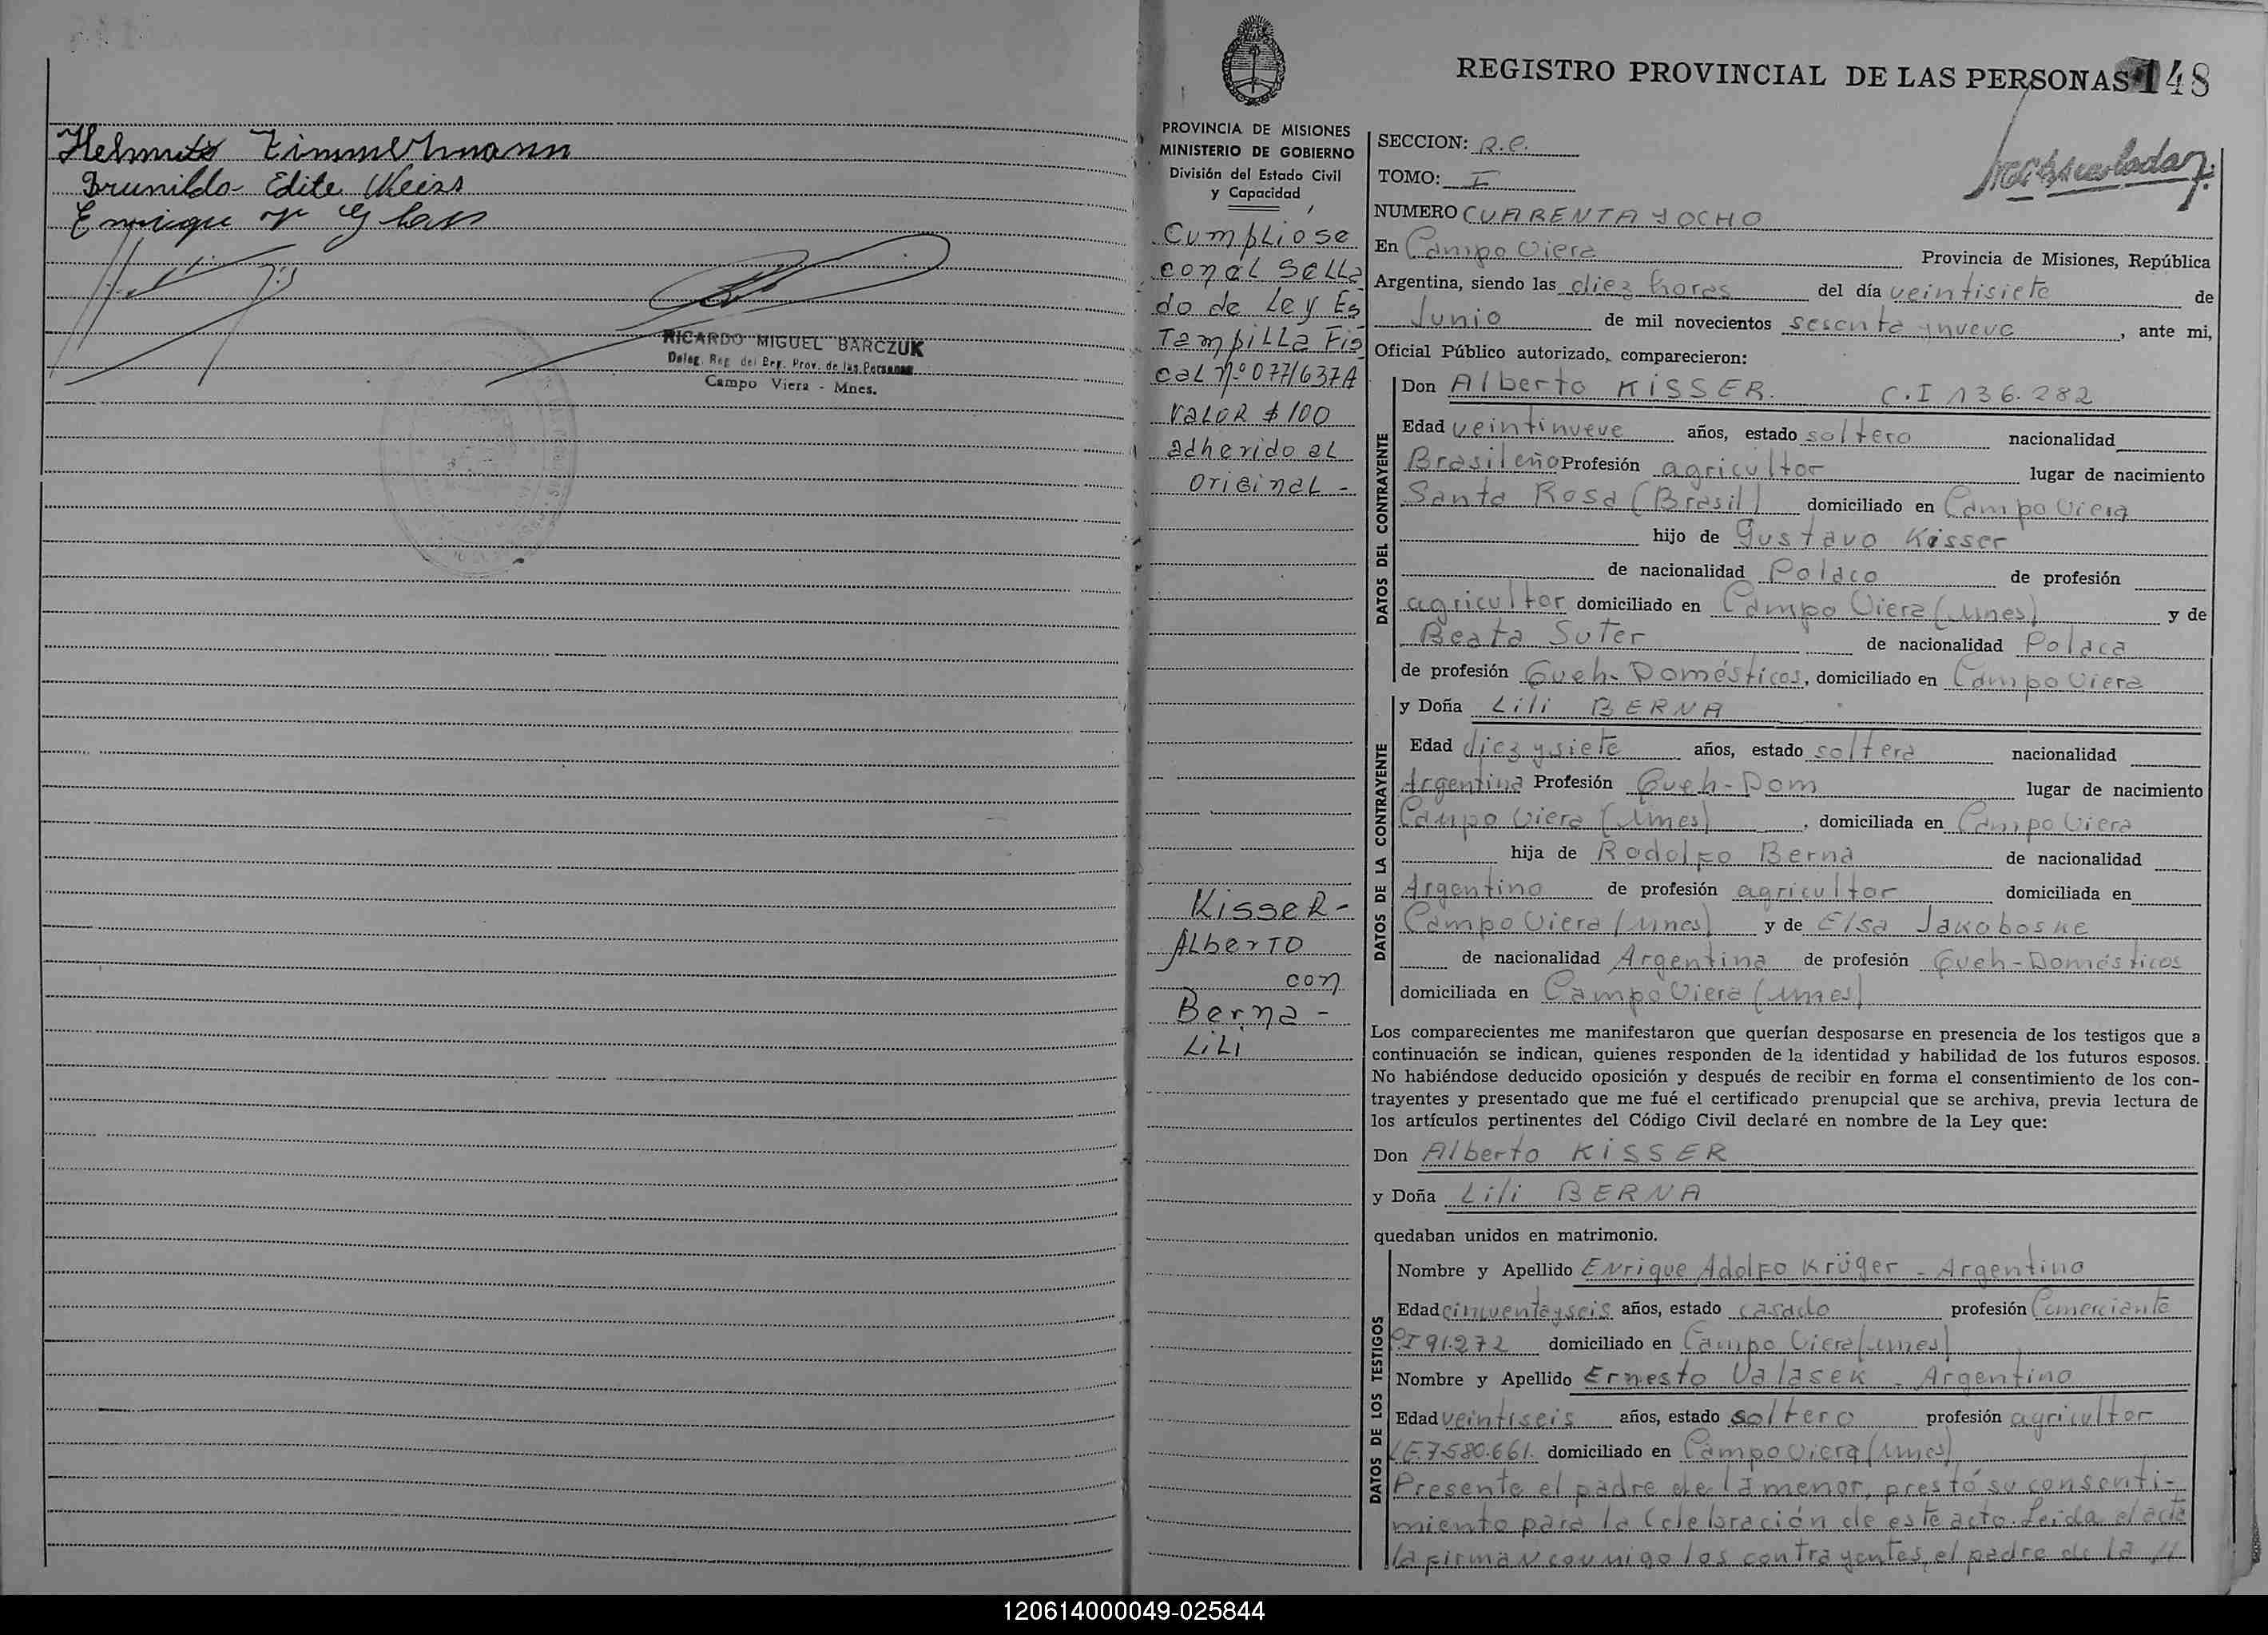 Helmuto Zimmermann
Brunilda Edite Weiss
Enrique
RICARDO MIGUEL BARCZUK
Deleg. Reg. del Reg. Prov. de las Personas
Campo Viera - Mnes.
REGISTRO PROVINCIAL DE LAS PERSONAS 148
PROVINCIA DE MISIONES
MINISTERIO DE GOBIERNO
División del Estado Civil
y Capacidad
Cumpliose
con el Sella
do de Ley Es
Tampilla Fis
cal Nº 0771637A
Valor $ 100
adherido al
original -
Kisser -
Alberto
con
Berna -
Lili
SECCION: R.C.
TOMO: I
NUMERO CUARENTA y OCHO
En Campo Viera Provincia de Misiones, República
Argentina, siendo las diez horas del día veintisiete de
Junio de mil novecientos sesenta y nueve, ante mi,
Oficial Público autorizado, comparecieron:
DATOS DEL CONTRAYENTE
Don Alberto KISSER. C.I 136.282
Edad veintinueve años, estado soltero nacionalidad
Brasileño Profesión agricultor lugar de nacimiento
Santa Rosa (Brasil) domiciliado en Campo Viera
hijo de Gustavo Kisser
de nacionalidad Polaco de profesión
agricultor domiciliado en Campo Viera (Mnes) y de
Beata Suter de nacionalidad Polaca
de profesión Queh. Domésticos, domiciliado en Campo Viera
DATOS DE LA CONTRAYENTE
y Doña Lili BERNA
Edad diez y siete años, estado soltera nacionalidad
Argentina Profesión Queh-Dom lugar de nacimiento
Campo Viera (Mnes), domiciliada en Campo Viera
hija de Rodolfo Berna de nacionalidad
Argentino de profesión agricultor domiciliada en
Campo Viera (Mnes) y de Elsa Jakoboske
de nacionalidad Argentina de profesión Queh-Domésticos
domiciliada en Campo Viera (Mnes)
Los comparecientes me manifestaron que querían desposarse en presencia de los testigos que a
continuación se indican, quienes responden de la identidad y habilidad de los futuros esposos.
No habiéndose deducido oposición y después de recibir en forma el consentimiento de los con-
trayentes y presentado que me fué el certificado prenupcial que se archiva, previa lectura de
los artículos pertinentes del Código Civil declaré en nombre de la Ley que:
Don Alberto KISSER
y Doña Lili BERNA
quedaban unidos en matrimonio.
DATOS DE LOS TESTIGOS
Nombre y Apellido Enrique Adolfo Krüger - Argentino
Edad cincuenta y seis años, estado casado profesión Comerciante
C.I 91.272 domiciliado en Campo Viera (Mnes)
Nombre y Apellido Ernesto Valasek - Argentino
Edad veintiseis años, estado soltero profesión agricultor
LE.7.580.661. domiciliado en Campo Viera (Mnes)
Presente el padre de la menor, prestó su consenti-
miento para la celebración de este acto. Leida el acta
la firman conmigo los contrayentes, el padre de la //
120614000049-025844